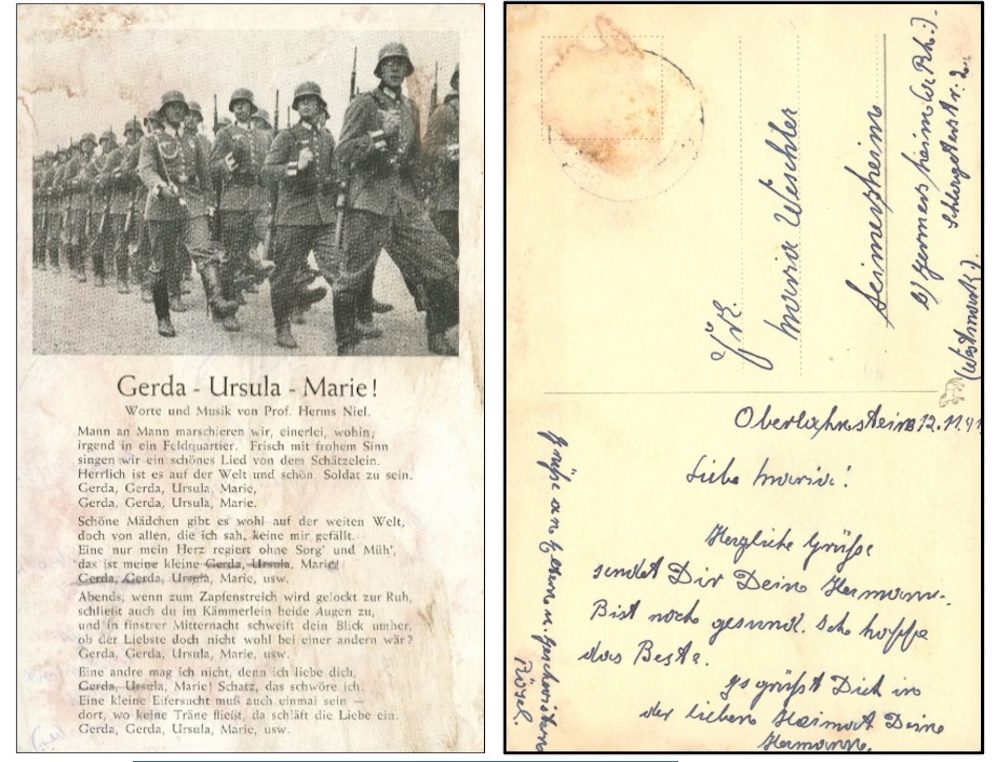 Gerda - Ursula - Marie!
Worte und Musik von Prof. Herms Niel.
Mann an Mann marschieren wir, einerlei, wohin,
irgend in ein Feldquartier. Frisch mit frohem Sinn
singen wir ein schönes Lied von dem Schätzelein.
Herrlich ist es auf der Welt und schön, Soldat zu sein.
Gerda, Gerda, Ursula, Marie,
Gerda, Gerda, Ursula, Marie.
Schöne Mädchen gibt es wohl auf der weiten Welt,
doch von allen, die ich sah, keine mir gefällt.
Eine nur mein Herz regiert ohne Sorg' und Müh',
das ist meine kleine Gerda, Ursula, Marie!
Gerda, Gerda, Ursula, Marie, usw.
Abends, wenn zum Zapfenstreich wird gelockt zur Ruh,
schließt auch du im Kämmerlein beide Augen zu,
und in finstrer Mitternacht schweift dein Blick umher,
ob der Liebste doch nicht wohl bei einer andern wär?
Gerda, Gerda, Ursula, Marie, usw.
Eine andre mag ich nicht, denn ich liebe dich,
Gerda, Ursula, Marie! Schatz, das schwöre ich.
Eine kleine Eifersucht muß auch einmal sein —
dort, wo keine Träne fließt, da schläft die Liebe ein.
Gerda, Gerda, Ursula, Marie, usw.
Frl.
Maria Weschler
Leimersheim
b/ Germersheim (a. Rh.).
(Westmark).
Oberlahnstein, 12.11.41
Liebe Maria!
Herzliche Grüße
sendet Dir Deine Hermann.
Bist noch gesund. Ich hoffe
das Beste.
Es grüßt Dich in
der lieben Heimat Deine
Hermann.
Grüße an Eltern u. Geschwistern
Rösel.